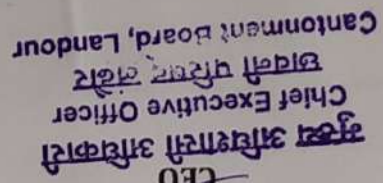 CEO
मुख्य अधिशासी अधिकारी
Chief Executive Officer
छावनी परिषद लंढौर
Cantonment Board, Landour